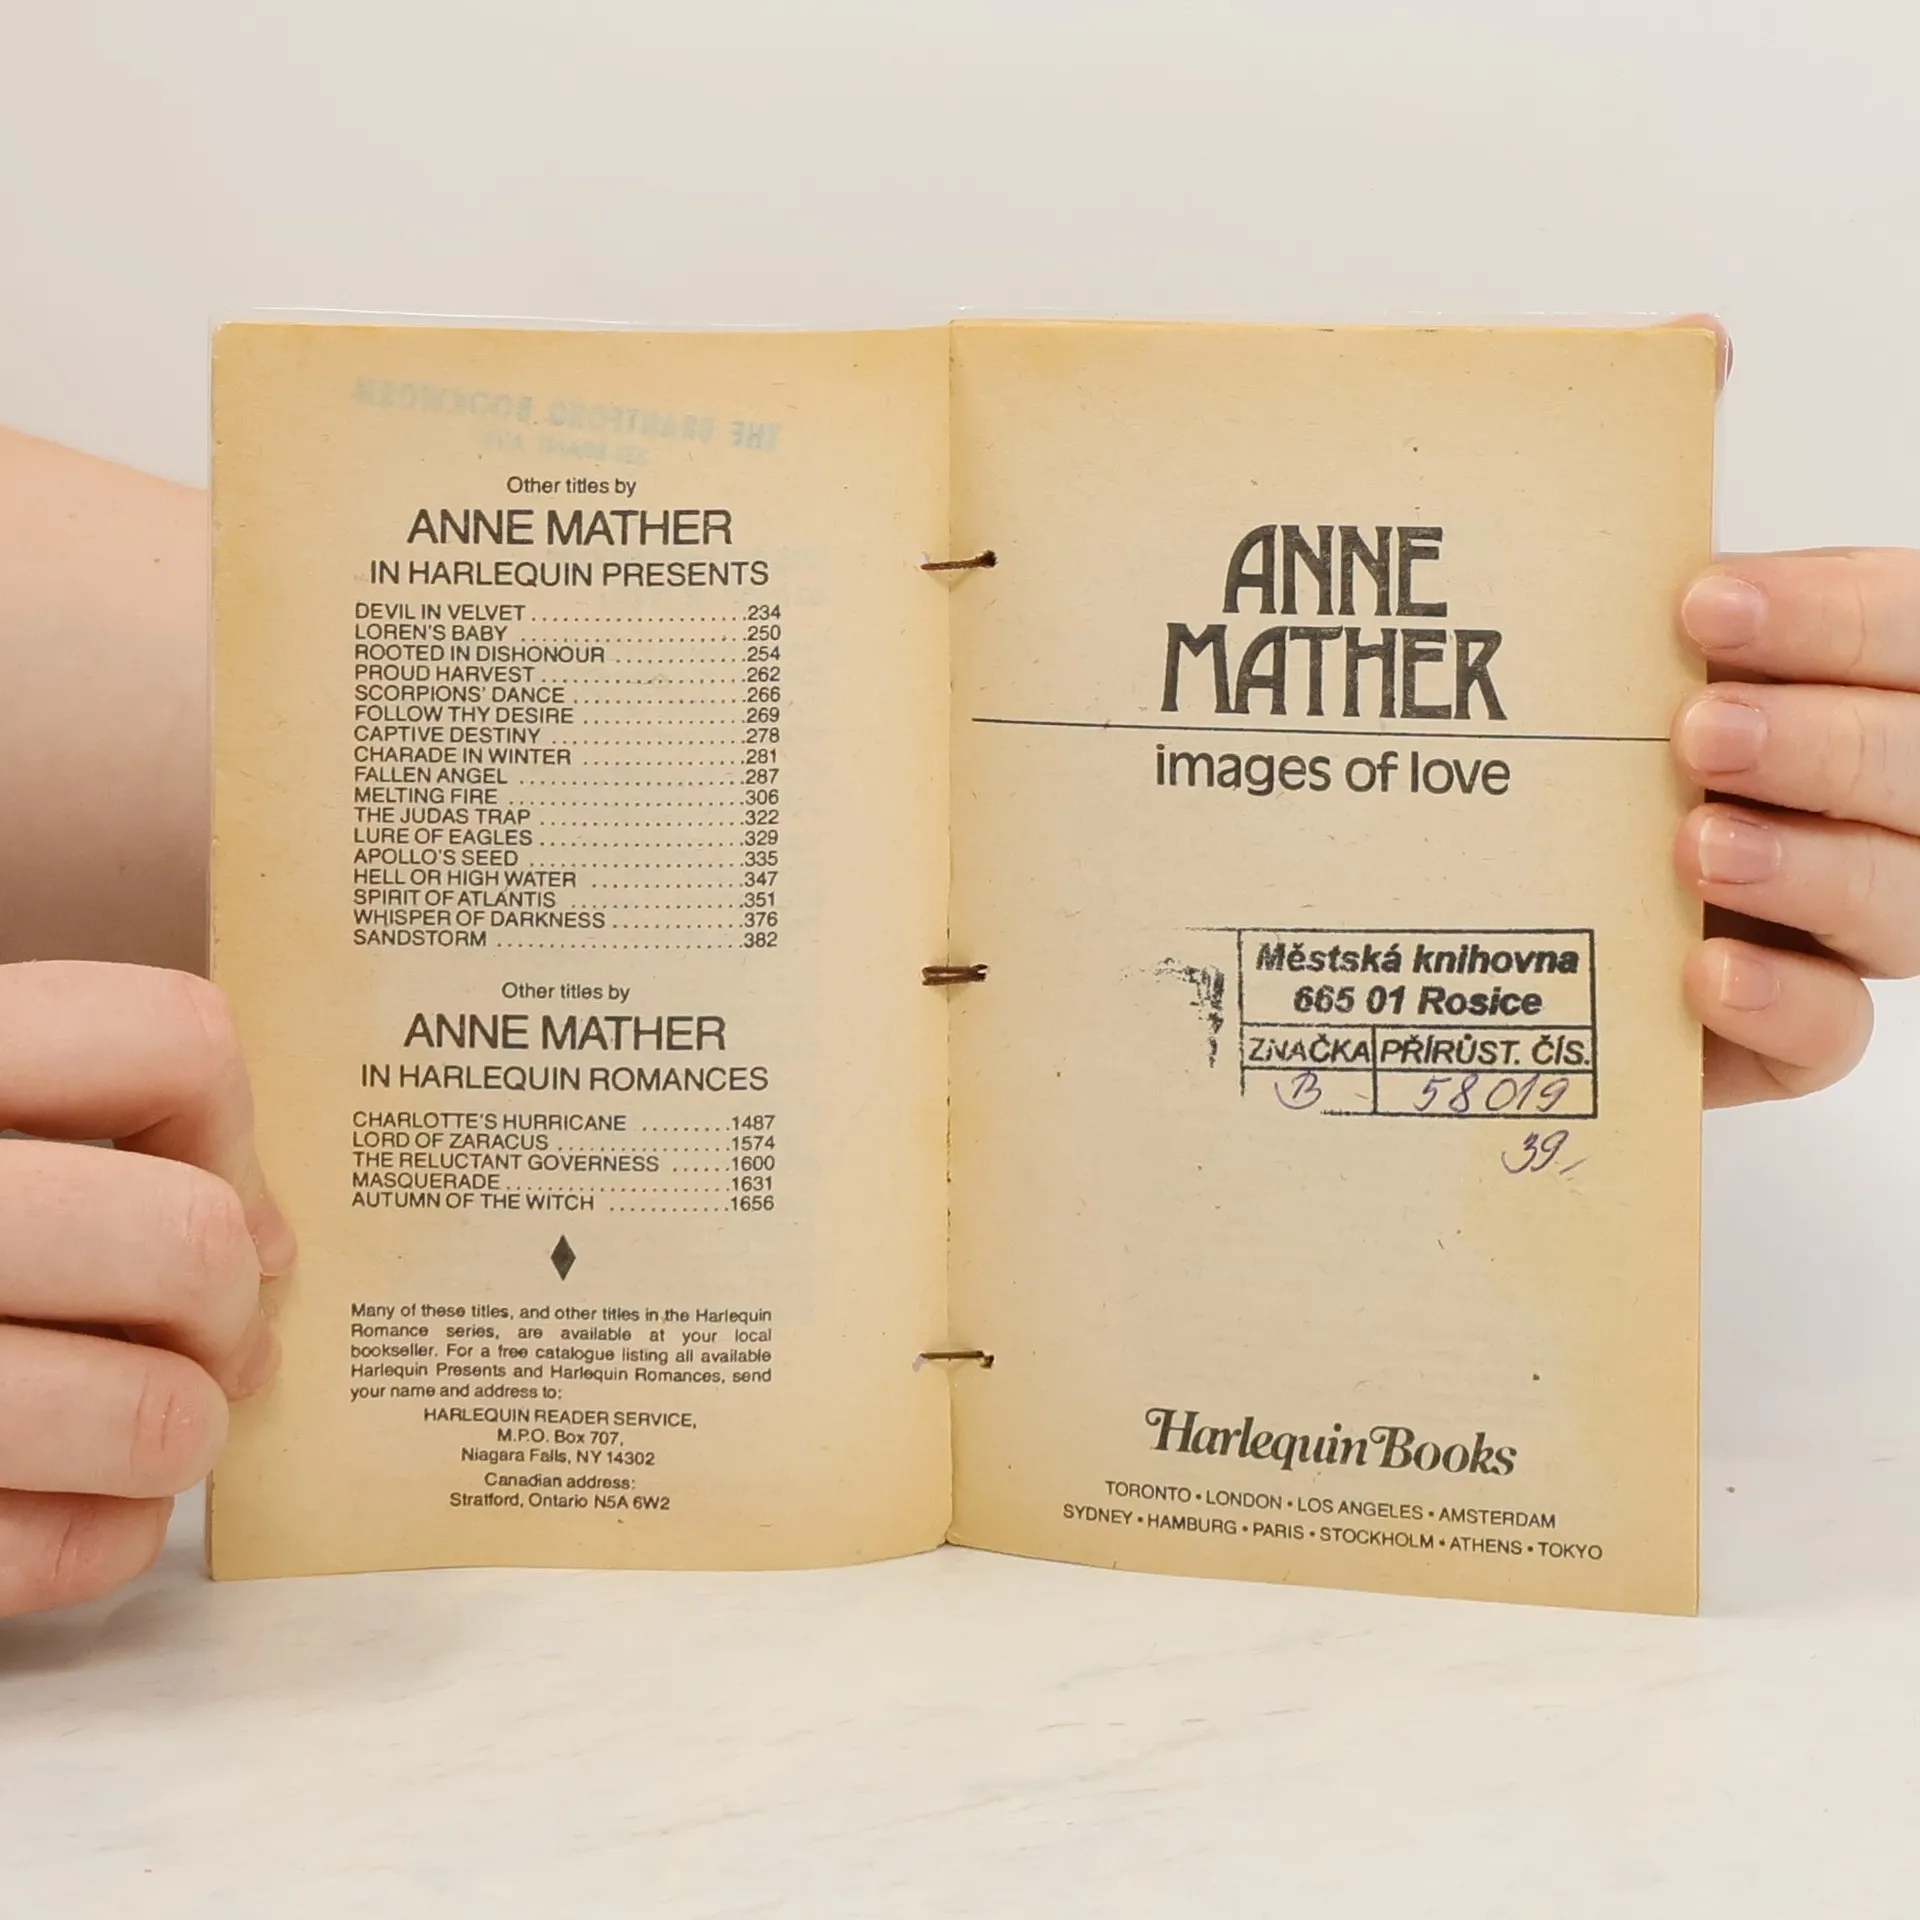 THE BRANTFORD BOOKWORM
Other titles by
ANNE MATHER
IN HARLEQUIN PRESENTS
DEVIL IN VELVET........................234
LOREN'S BABY ........................250
ROOTED IN DISHONOUR .............254
PROUD HARVEST......................262
SCORPIONS' DANCE ..................266
FOLLOW THY DESIRE .................269
CAPTIVE DESTINY .....................278
CHARADE IN WINTER .................281
FALLEN ANGEL ........................287
MELTING FIRE .........................306
THE JUDAS TRAP ......................322
LURE OF EAGLES ......................329
APOLLO'S SEED .......................335
HELL OR HIGH WATER ................347
SPIRIT OF ATLANTIS ..................351
WHISPER OF DARKNESS..............376
SANDSTORM ..........................382
Other titles by
ANNE MATHER
IN HARLEQUIN ROMANCES
CHARLOTTE'S HURRICANE .........1487
LORD OF ZARACUS ..................1574
THE RELUCTANT GOVERNESS ......1600
MASQUERADE........................1631
AUTUMN OF THE WITCH ............1656
Many of these titles, and other titles in the Harlequin
Romance series, are available at your local
bookseller. For a free catalogue listing all available
Harlequin Presents and Harlequin Romances, send
your name and address to:
HARLEQUIN READER SERVICE,
M.P.O. Box 707,
Niagara Falls, NY 14302
Canadian address:
Stratford, Ontario N5A 6W2
ANNE
MATHER
images of love
Městská knihovna
665 01 Rosice
ZNAČKA PŘÍRŮST. ČÍS.
B 58019
39,-
Harlequin Books
TORONTO • LONDON • LOS ANGELES • AMSTERDAM
SYDNEY • HAMBURG • PARIS • STOCKHOLM • ATHENS • TOKYO